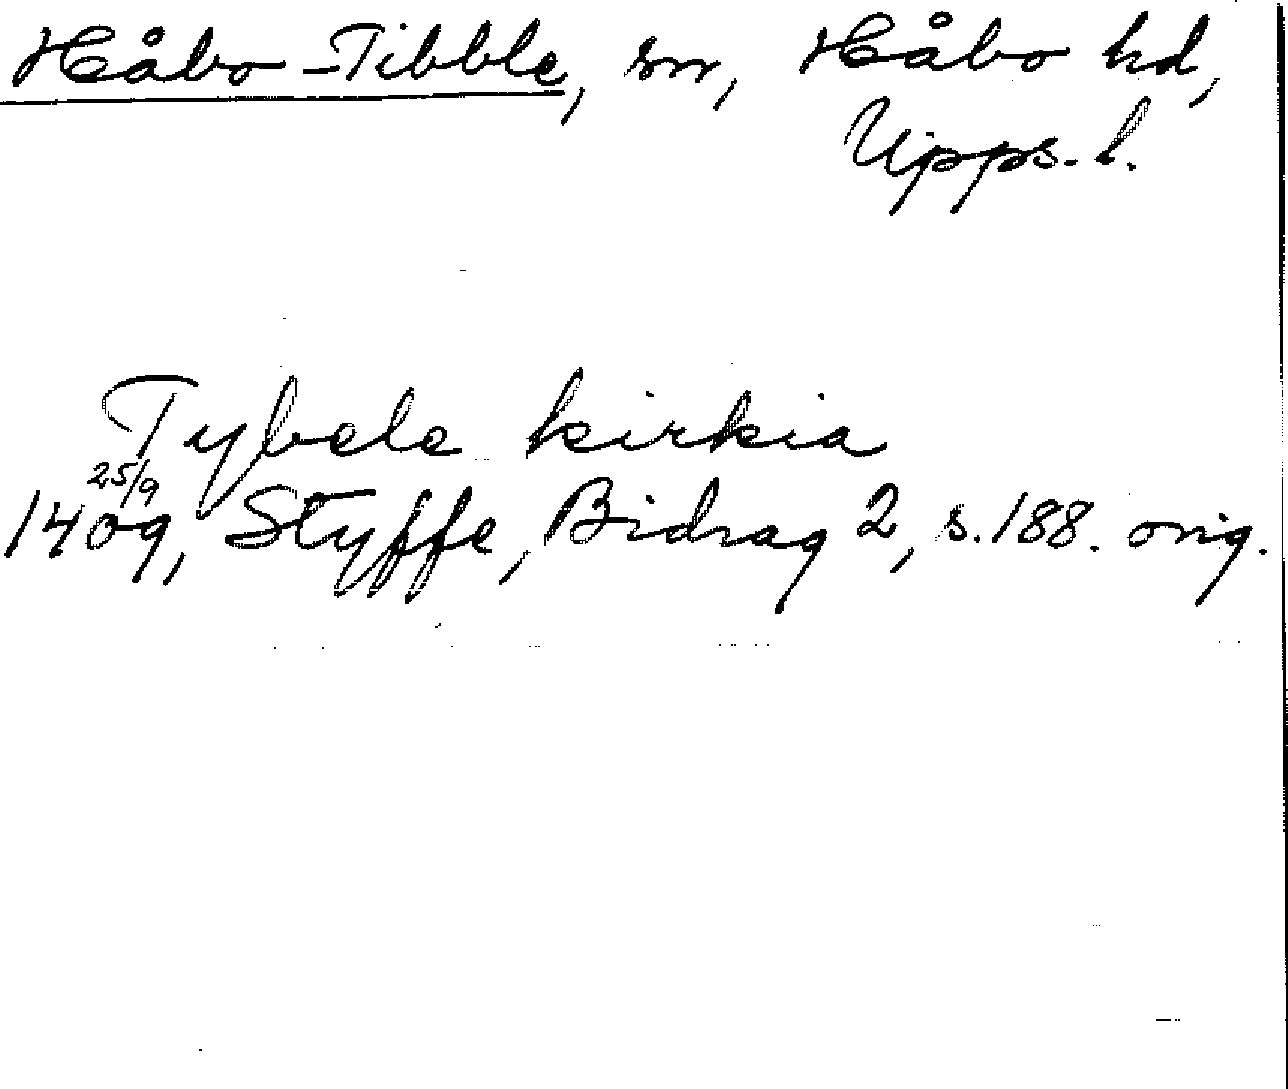 Håbo-Tibble, sn, Håbo hd,
Upps. l.
Tybele kirkia
25/9
1409, Styffe, Bidrag 2, s. 188. orig.